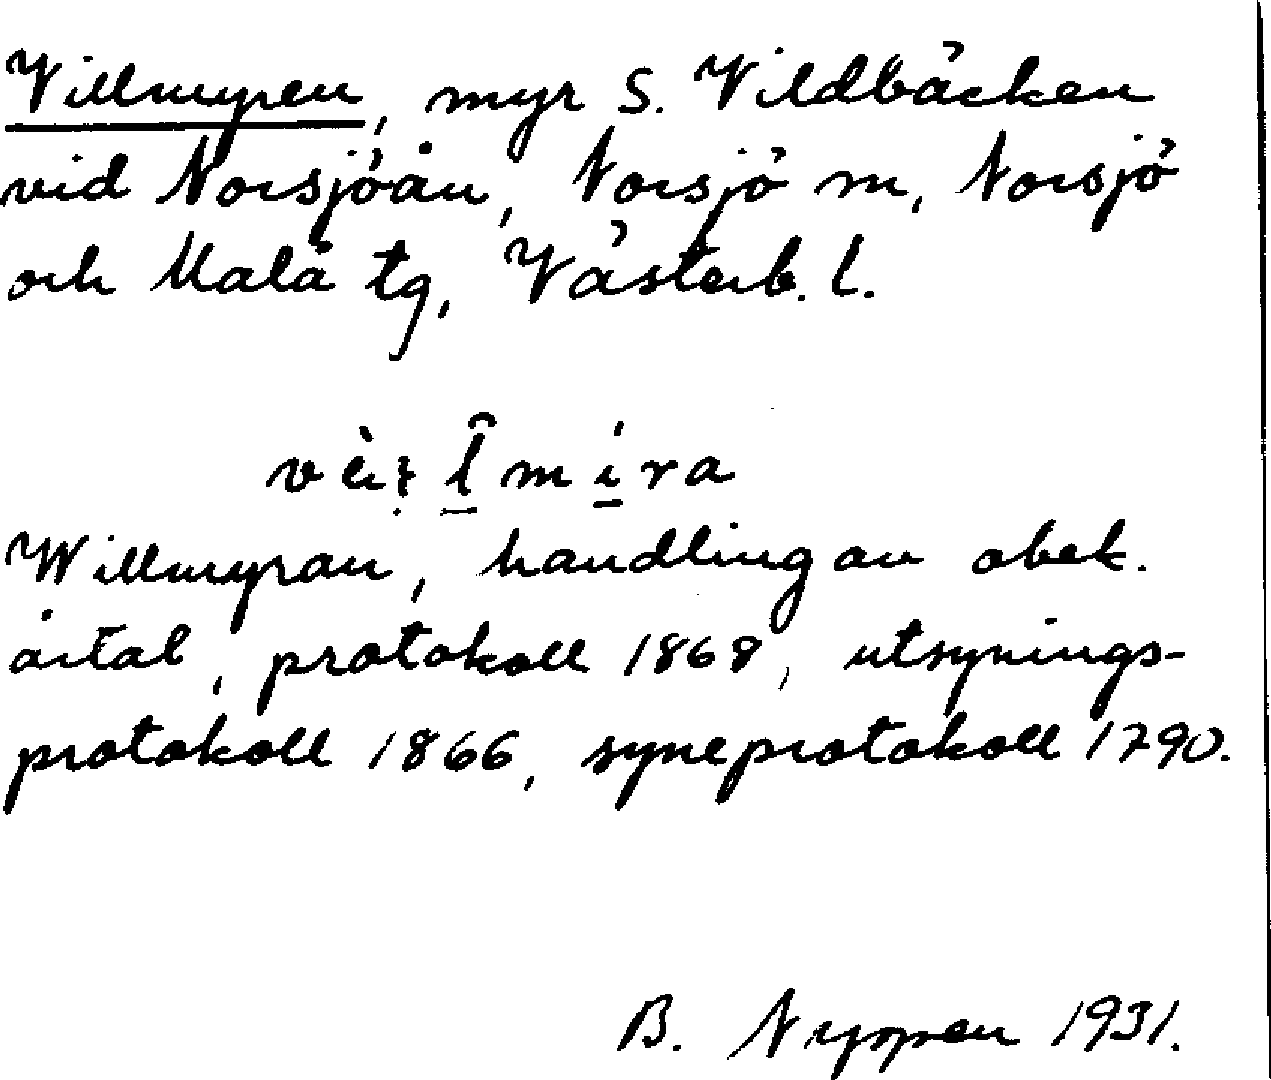 Villmyren, myr S. Vildbäcken
vid Norsjöån, Norsjö m, Norsjö
och Malå tg, Västerb. l.
Willmyran, handling av obek.
årtal, protokoll 1868, utsynings-
protokoll 1866, syneprotokoll 1790.
B. Nyppen 1931.